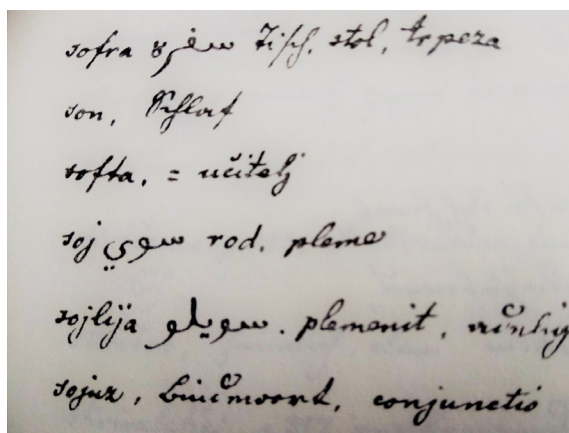 sofra سفره Tisch, stol, trpeza
son, Schlaf
softa, = učitelj
soj سوي rod, pleme
sojlija سويلو . plemenit,
sojuz, conjunctio